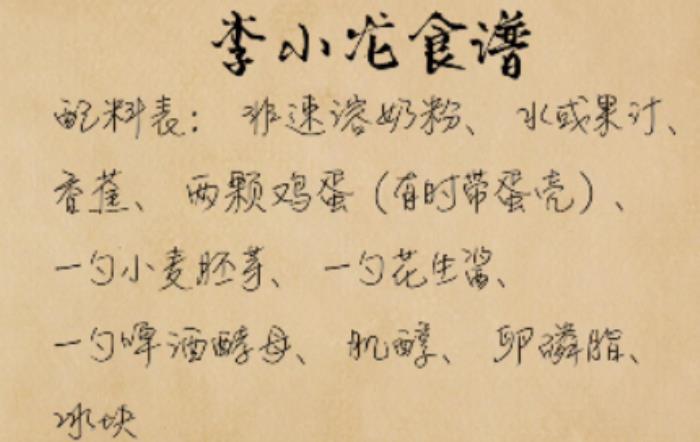 李小龙食谱
配料表：非速溶奶粉、水或果汁、
香蕉、两颗鸡蛋（有时带蛋壳）、
一勺小麦胚芽、一勺花生酱、
一勺啤酒酵母、肌醇、卵磷脂、
冰块